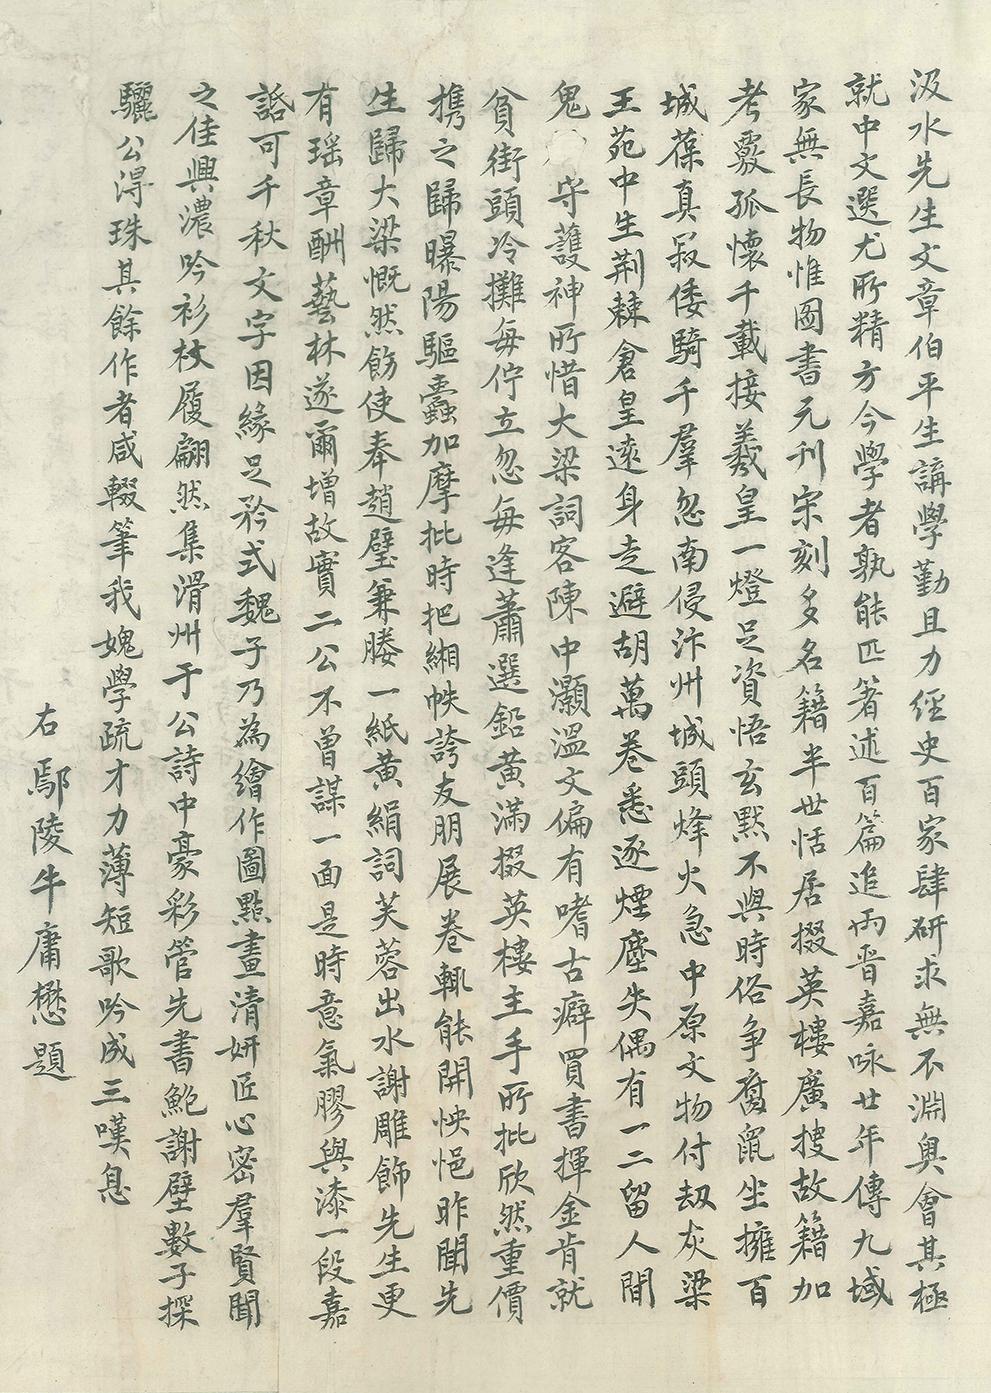 汲水先生文章伯平生講學勤且力經史百家肆研求無不淵奧會其極
就中文選尤所精方今學者孰能匹著述百篇追兩晋嘉咏廿年傳九域
家無長物惟圖書元刊宋刻多名籍半世恬居掇英樓廣搜故籍加
考覈孤懷千載接羲皇一燈足資悟玄默不與時俗爭腐鼠坐擁百
城葆真寂倭騎千羣忽南侵汴州城頭烽火急中原文物付刼灰梁
王苑中生荆棘倉皇遠身走避胡萬卷悉逐煙塵失偶有一二留人間
鬼 守護神所惜大梁詞客陳中灝溫文偏有嗜古癖買書揮金肯就
貧街頭冷攤每佇立忽每逢蕭選鉛黄滿掇英樓主手所批欣然重價
携之歸曝陽驅蠹加摩批時把緗帙誇友朋展卷輒能開怏悒昨聞先
生歸大梁慨然飭使奉趙璧兼賸一紙黄絹詞芙蓉出水謝雕飾先生更
有瑶章酬藝林遂爾增故實二公不曾謀一面是時意氣膠與漆一段嘉
話可千秋文字因緣足矜式魏子乃為繪作圖點畫清妍匠心密羣賢聞
之佳興濃吟衫杖履翩然集滑州于公詩中豪彩管先書鮑謝壁數子探
驪公淂珠其餘作者咸輟筆我媿學疏才力薄短歌吟成三嘆息
右鄢陵牛庸懋題